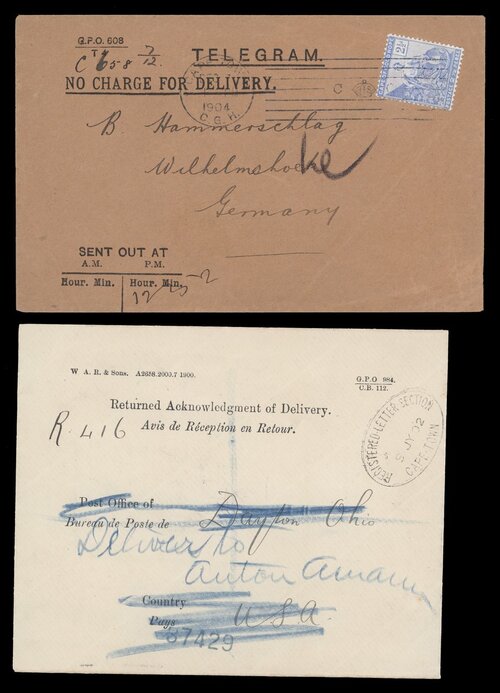 G.P.O. 608
7/12.
C 658
TELEGRAM.
NO CHARGE FOR DELIVERY.
2½
1904
C.G.H.
C
B. Hammerschlag
Wilhelmshoe
Germany
SENT OUT AT
A.M. P.M.
Hour. Min. Hour. Min.
12 25
W A. R. & Sons. A2638.2000.7 1900.
G.P.O 984.
U.B. 112.
Returned Acknowledgment of Delivery.
Avis de Réception en Retour.
R. 416
REGISTERED-LETTER-SECTION
JY 02
CAPE-TOWN
Post Office of
Bureau de Poste de
Dayton Ohio
Deliver to
Anton Amann
Country
Pays
U.S.A.
37429